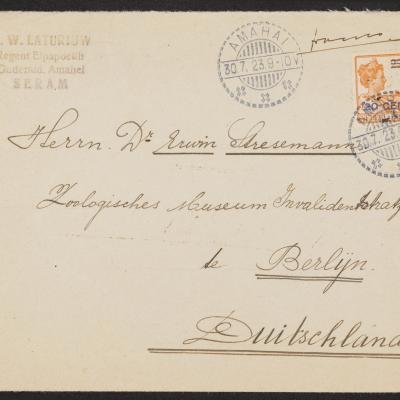 W. LATURIUW
Regent Elpapoetih
Ouderafd. Amahei
SERAM
AMAHAI
30.7.23.9-10V
30 CENT
30.7.23.9-10V
Herrn. Dr Erwin Stresemann
Zoologisches Museum
te Berlijn.
Duitschland